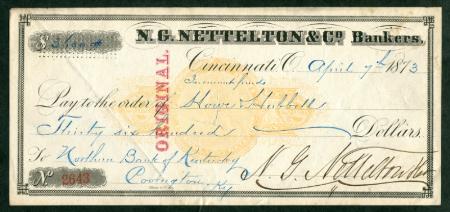 N. G. NETTELTON & Co. Bankers.
$3600
Cincinnati, O. April 7th 1873
In current funds
Pay to the order of Howe & Hubbell
Thirty six hundred Dollars.
ORIGINAL.
To Northern Bank of Kentucky
Covington, Ky
No 2643
N. G. Nettelton